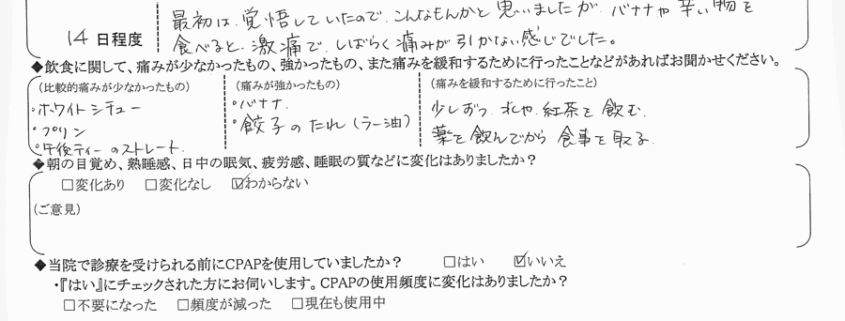 最初は、覚悟していたので、こんなもんかと思いましたが、バナナや辛い物を
14 日程度
食べると、激痛で、しばらく痛みが引かない感じでした。
◆飲食に関して、痛みが少なかったもの、強かったもの、また痛みを緩和するために行ったことなどがあればお聞かせください。
(比較的痛みが少なかったもの) (痛みが強かったもの) (痛みを緩和するために行ったこと)
・ホワイトシチュー ・バナナ. 少しずつ、水や、紅茶を飲む。
・プリン ・餃子のたれ(ラー油) 薬を飲んでから食事を取る.
・午後ティーのストレート.
◆朝の目覚め、熟睡感、日中の眠気、疲労感、睡眠の質などに変化はありましたか？
□変化あり □変化なし ☑わからない
(ご意見)
◆当院で診療を受けられる前にCPAPを使用していましたか？ □はい ☑いいえ
・『はい』にチェックされた方にお伺いします。CPAPの使用頻度に変化はありましたか？
□不要になった □頻度が減った □現在も使用中